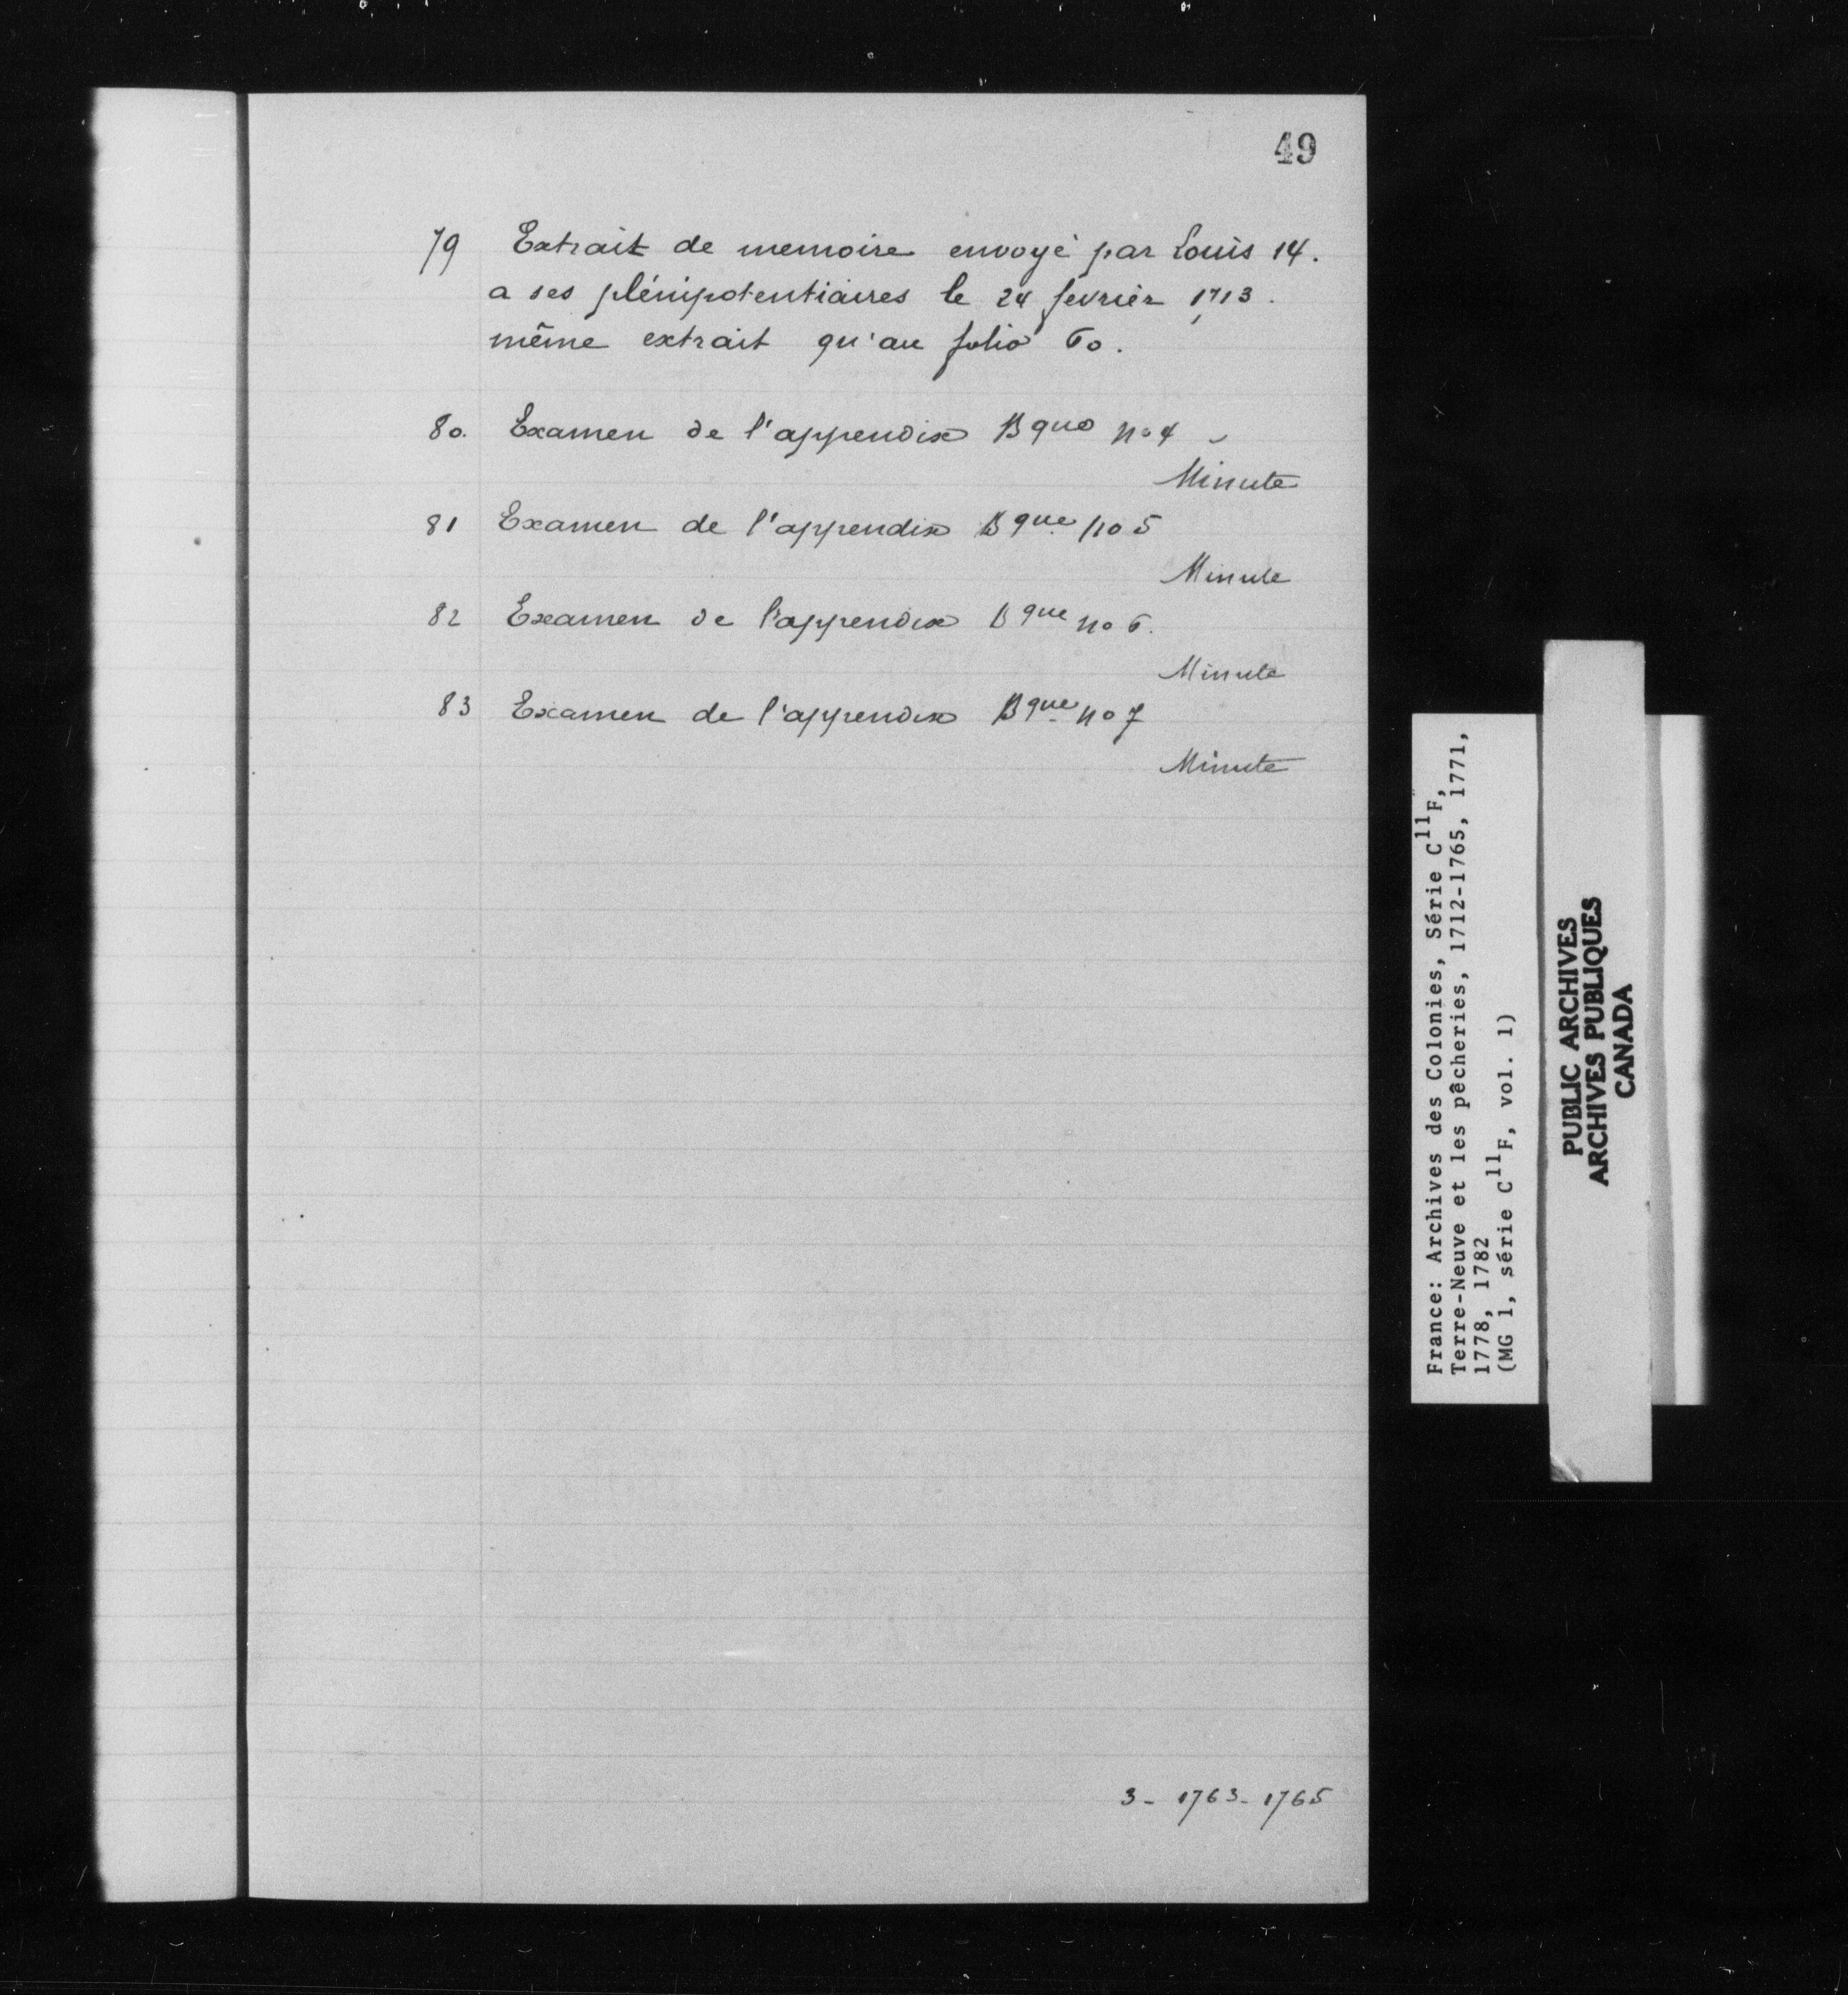 49
79 Extrait de memoire envoyé par Louis 14.
a ses plénipotentiaires le 24 fevrier 1713.
même extrait qu'au folio 60.
80. Examen de l'appendix Bque no 4
Minute
81 Examen de l'appendix Bque no 5
Minute
82 Examen de l'appendix Bque no 6.
Minute
83 Examen de l'appendix Bque no 7
Minute
3 - 1763 - 1765
France: Archives des Colonies, Série C11F,
Terre-Neuve et les pêcheries, 1712-1765, 1771,
1778, 1782
(MG 1, série C11F, vol. 1)
PUBLIC ARCHIVES
ARCHIVES PUBLIQUES
CANADA